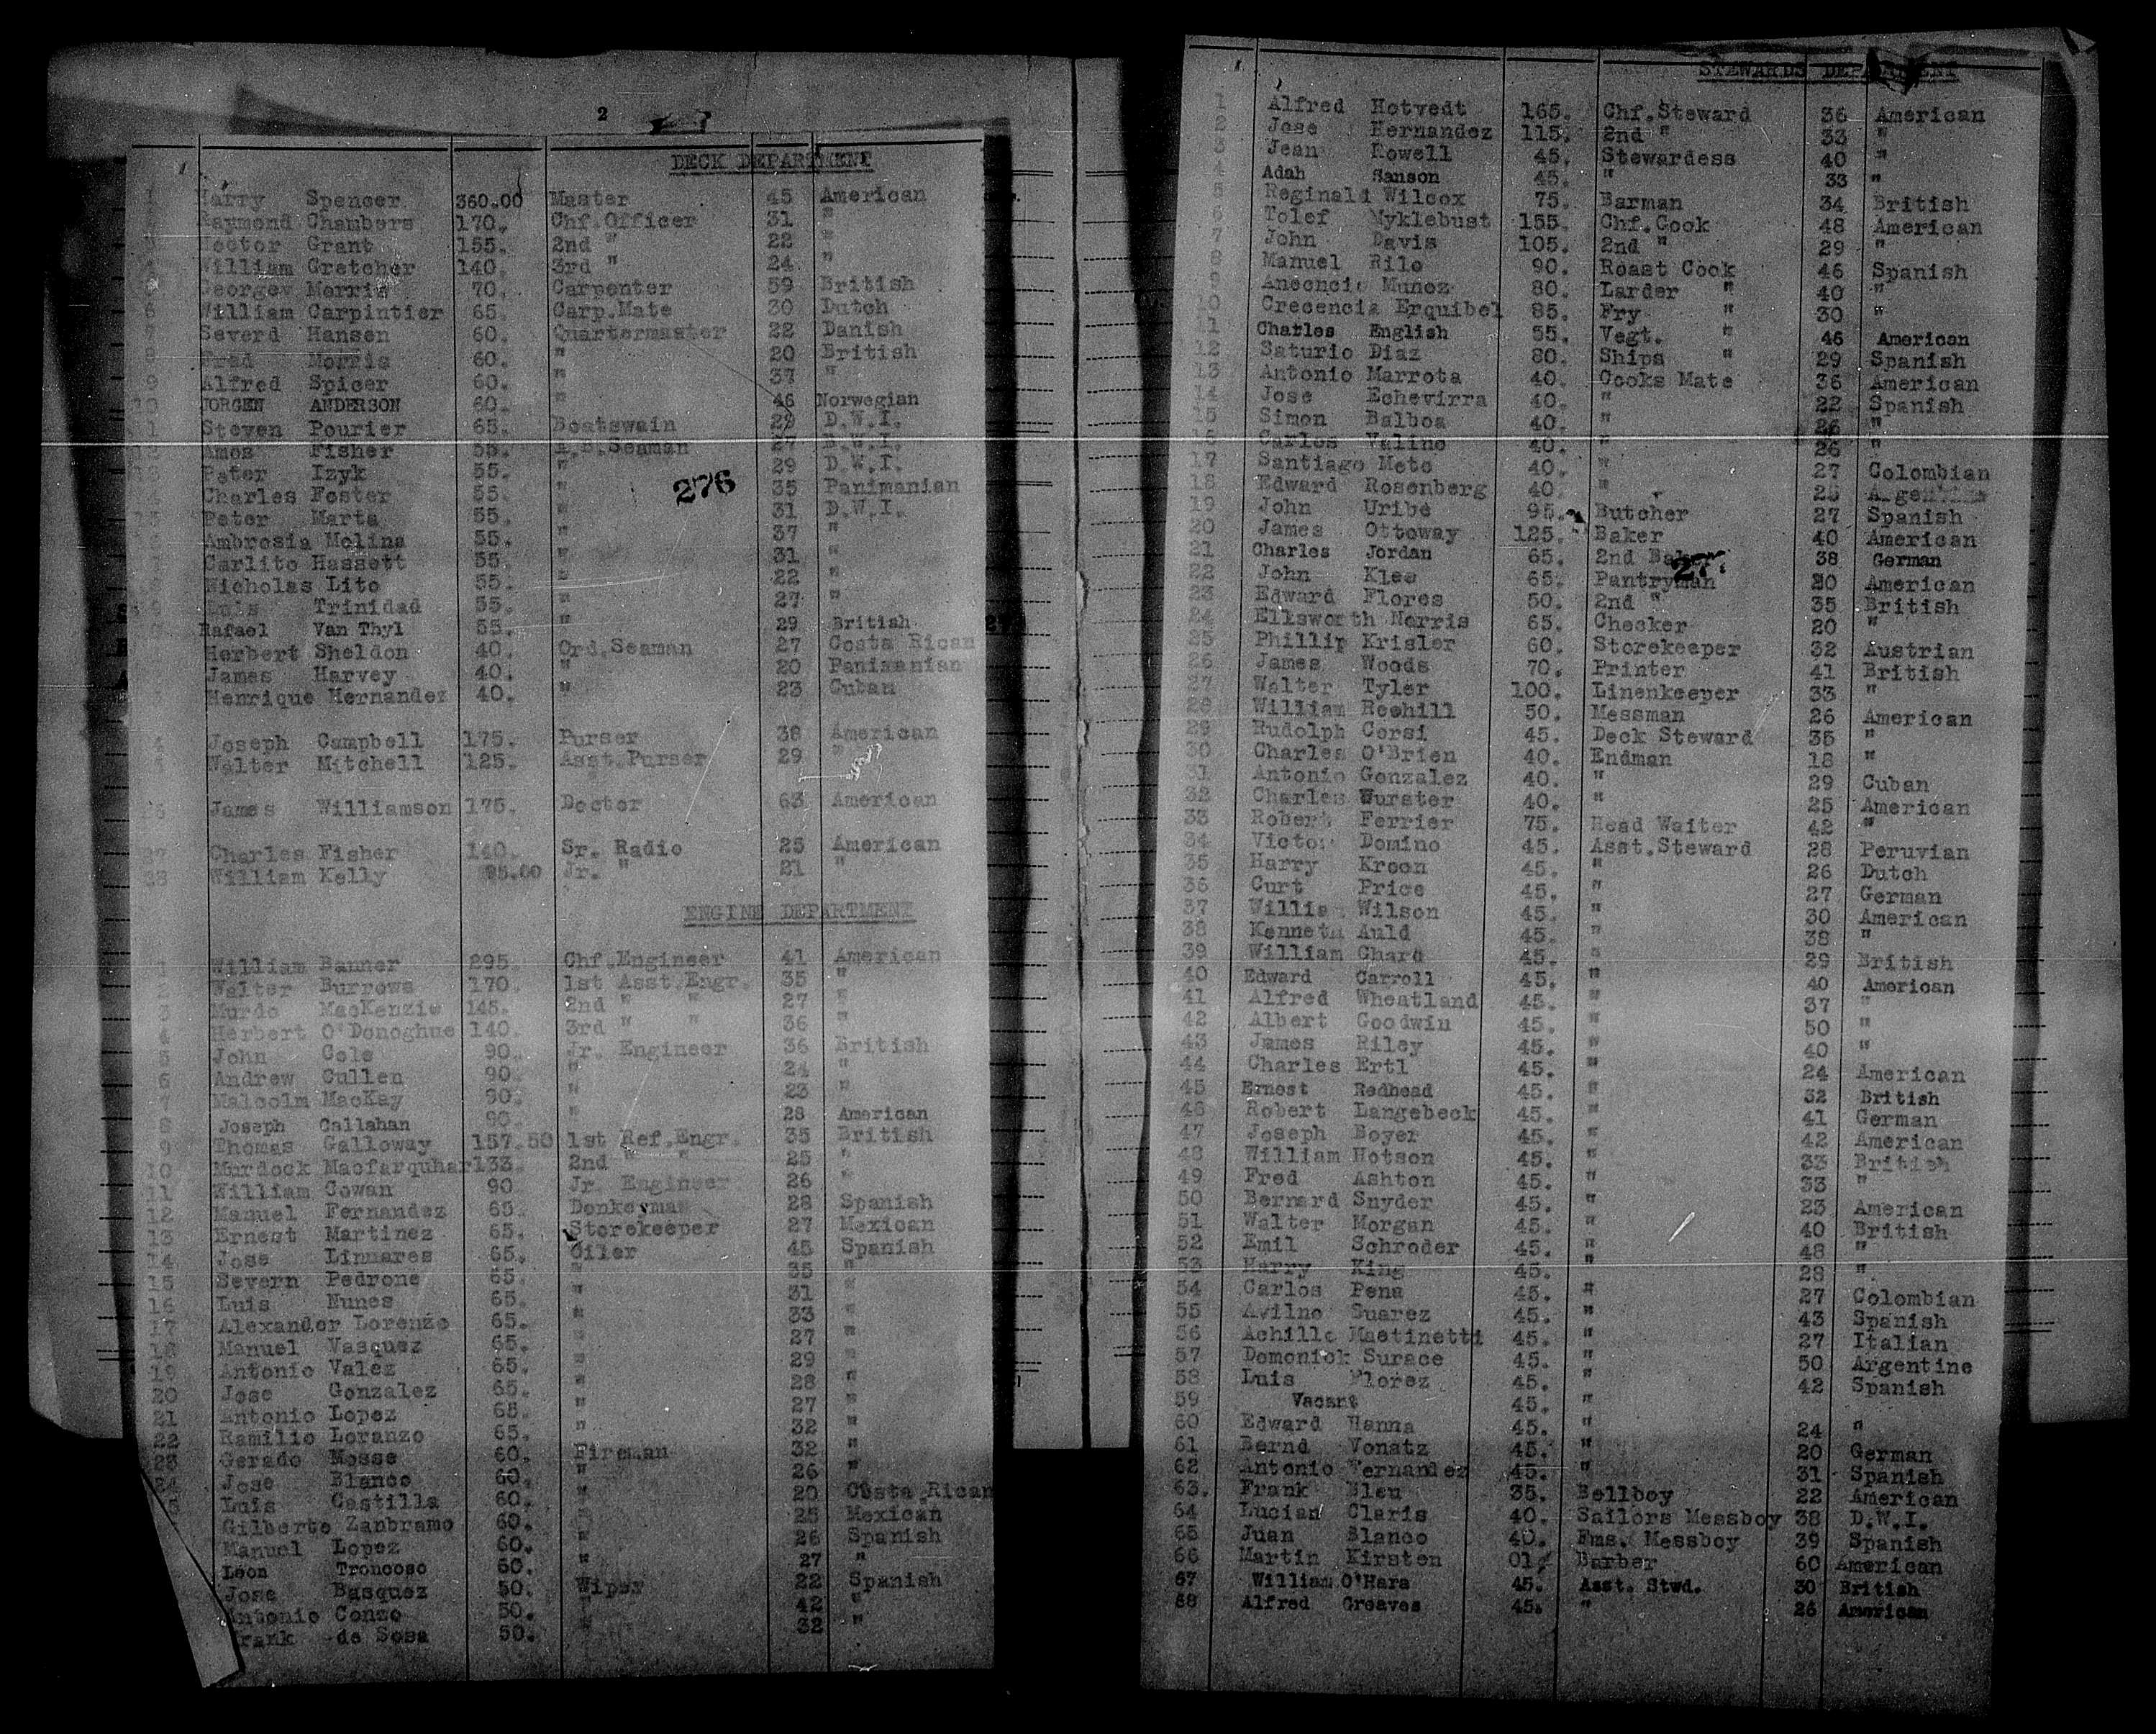 2
DECK DEPARTMENT
Harry Spencer 360.00 Master 45 American
Raymond Chambers 170. Chf.Officer 31 "
Hector Grant 155. 2nd " 22 "
William Gretcher 140. 3rd " 24 "
George Morris 70. Carpenter 59 British
6 William Carpintier 65. Carp.Mate 30 Dutch
7 Severd Hansen 60. Quartermaster 22 Danish
8 Fred Morris 60. " 20 British
9 Alfred Spicer 60. " 37 "
10 JORGEN ANDERSON 60. " 46 Norwegian
11 Steven Pourier 65. Boatswain 29 D.W.I.
12 Amos Fisher 55. A.B.Seaman 27 B.W.I.
13 Peter Izyk 55. " 29 D.W.I.
276
14 Charles Foster 55. " 35 Panimanian
15 Peter Marta 55. " 31 D.W.I.
Ambrosia Molina 55. " 37 "
Carlito Hassett 55. " 31 "
Nicholas Lito 55. " 22 "
Luis Trinidad 55. " 27 "
Rafael Van Thyl 55. " 29 British
Herbert Sheldon 40. Ord.Seaman 27 Costa Rican
James Harvey 40. " 20 Panimanian
Henrique Hernandez 40. " 23 Cuban
Joseph Campbell 175. Purser 38 American
Walter Mitchell 125. Asst.Purser 29 "
26 James Williamson 175. Doctor 63 American
27 Charles Fisher 140. Sr. Radio 25 American
28 William Kelly 95.00 Jr. " 21 "
ENGINE DEPARTMENT
1 William Banner 295. Chf.Engineer 41 American
2 Walter Burrows 170. 1st Asst.Engr. 35 "
3 Murdo MacKenzie 145. 2nd " " 27 "
4 Herbert O'Donoghue 140. 3rd " " 36 "
5 John Cole 90. Jr. Engineer 36 British
6 Andrew Cullen 90. " 24 "
7 Malcolm MacKay 90. " 23 "
8 Joseph Callahan 90. " 28 American
9 Thomas Galloway 157.50 1st Ref.Engr. 35 British
10 Murdock Macfarquhar 133. 2nd " " 25 "
11 William Cowan 90 Jr. Engineer 26 "
12 Manuel Fernandez 65. Donkeyman 28 Spanish
13 Ernest Martinez 65. Storekeeper 27 Mexican
14 Jose Linnares 65. Oiler 45 Spanish
15 Severn Pedrone 65. " 35 "
16 Luis Nunes 65. " 31 "
17 Alexander Lorenzo 65. " 33 "
18 Manuel Vasquez 65. " 27 "
19 Antonio Valez 65. " 29 "
20 Jose Gonzalez 65. " 28 "
21 Antonio Lopez 65. " 27 "
22 Ramilio Loranzo 65. " 32 "
23 Gerado Mosse 60. Fireman 32 "
24 Jose Blanco 60. " 26 "
Luis Castilla 60. " 20 Costa Rican
Gilberto Zanbramo 60. " 25 Mexican
Manuel Lopez 60. " 26 Spanish
Leon Troncoso 60. " 27 "
Jose Basquez 50. Wiper 22 Spanish
Antonio Conzo 50. " 42 "
Frank de Sosa 50. " 32 "
STEWARDS DEPARTMENT
1 Alfred Hotvedt 165. Chf.Steward 36 American
2 Jose Hernandez 115. 2nd " 33 "
3 Jean Rowell 45. Stewardess 40 "
4 Adah Sanson 45. " 33 "
5 Reginald Wilcox 75. Barman 34 British
6 Tolef Myklebust 155. Chf.Cook 48 American
7 John Davis 105. 2nd " 29 "
8 Manuel Rilo 90. Roast Cook 46 Spanish
9 Anecncio Munoz 80. Larder " 40 "
10 Crecencia Erquibel 85. Fry " 30 "
11 Charles English 55. Vegt. " 46 American
12 Saturio Diaz 80. Ships " 29 Spanish
13 Antonio Marrota 40. Cooks Mate 36 American
14 Jose Echevirra 40. " 22 Spanish
15 Simon Balboa 40. " 26 "
16 Carlos Valino 40. " 26 "
17 Santiago Meto 40. " 27 Colombian
18 Edward Rosenberg 40. " 28 Argentine
19 John Uribe 95. Butcher 27 Spanish
20 James Ottoway 125. Baker 40 American
21 Charles Jordan 65. 2nd Baker 38 German
22 John Klee 65. Pantryman 20 American
23 Edward Flores 50. 2nd " 35 British
24 Ellksworth Norris 65. Checker 20 "
25 Phillip Krisler 60. Storekeeper 32 Austrian
26 James Woods 70. Printer 41 British
27 Walter Tyler 100. Linenkeeper 33 "
28 William Reehill 50. Messman 26 American
29 Rudolph Corsi 45. Deck Steward 35 "
30 Charles O'Brien 40. Endman 18 "
31 Antonio Gonzalez 40. " 29 Cuban
32 Charles Wurster 40. " 25 American
33 Robert Ferrier 75. Head Waiter 42 "
34 Victor Domino 45. Asst.Steward 28 Peruvian
35 Harry Kroon 45. " 26 Dutch
36 Curt Price 45. " 27 German
37 William Wilson 45. " 30 American
38 Kenneth Auld 45. " 38 "
39 William Chard 45. " 29 British
40 Edward Carroll 45. " 40 American
41 Alfred Wheatland 45. " 37 "
42 Albert Goodwin 45. " 50 "
43 James Riley 45. " 40 "
44 Charles Ertl 45. " 24 American
45 Ernest Redhead 45. " 32 British
46 Robert Langebeck 45. " 41 German
47 Joseph Boyer 45. " 42 American
48 William Hotson 45. " 33 British
49 Fred Ashton 45. " 33 "
50 Bernard Snyder 45. " 23 American
51 Walter Morgan 45. " 40 British
52 Emil Schroder 45. " 48 "
53 Harry King 45. " 28 "
54 Carlos Pena 45. " 27 Colombian
55 Avilno Suarez 45. " 43 Spanish
56 Achille Mastinetti 45. " 27 Italian
57 Domonick Surace 45. " 50 Argentine
58 Luis Florez 45. " 42 Spanish
59 Vacant 45. "
60 Edward Hanna 45. " 24 "
61 Bernd Vonatz 45. " 20 German
62 Antonio Fernandez 45. " 31 Spanish
63. Frank Bleu 35. Bellboy 22 American
64 Lucian Claris 40. Sailors Messboy 38 D.W.I.
65 Juan Blanco 40. Fms. Messboy 39 Spanish
66 Martin Kirsten 01 Barber 60 American
67 William O'Hara 45. Asst. Stwd. 30 British
68 Alfred Greaves 45. " 26 American